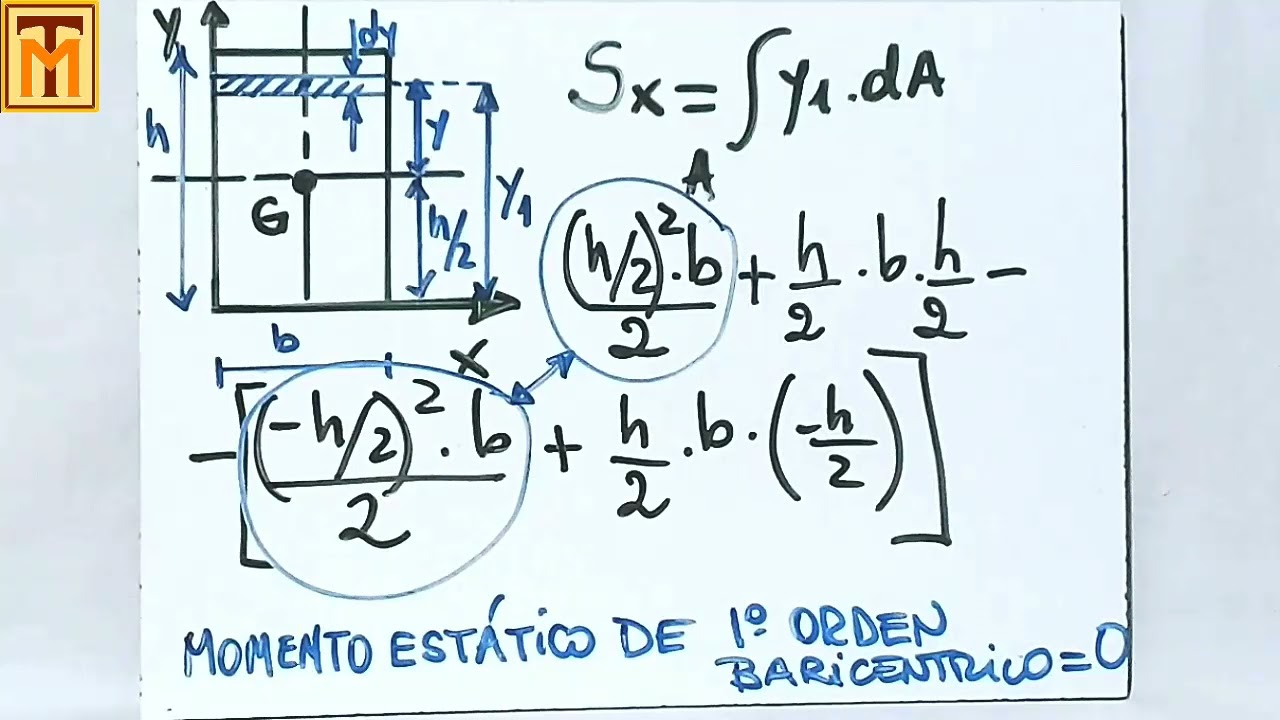 TM
y
dy
Sx = ∫ y₁ . dA
A
h
y
y₁
G
h/2
(h/2)² . b / 2 + h/2 . b . h/2 -
b
x
- [ (-h/2)² . b / 2 + h/2 . b . (-h/2) ]
MOMENTO ESTÁTICO DE 1º ORDEN
BARICENTRICO = 0